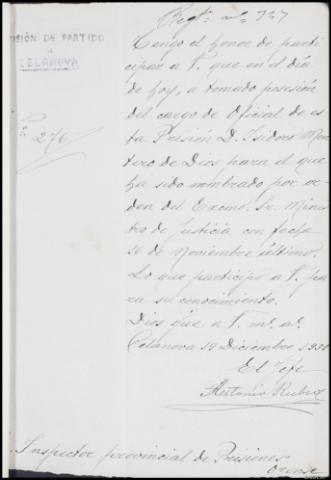 Regtº nº 737
PRISIÓN DE PARTIDO
DE
CELANOVA
Nº 276
Tengo el honor de parti
cipar a V. que en el día
de hoy, a tomado posesión
del cargo de Oficial de es
ta Prisión D. Isidoro Mon
tero de Dios para el que
ha sido nombrado por or
den del Excmo. Sr. Minis
tro de Justicia con fecha
16 de Noviembre último.
Lo que participo a V. pa
ra su conocimiento.
Dios gue a V. ms. as.
Celanova 19 Diciembre
El Jefe
Antonio Rubio
Inspector provincial de Prisiones
Orense